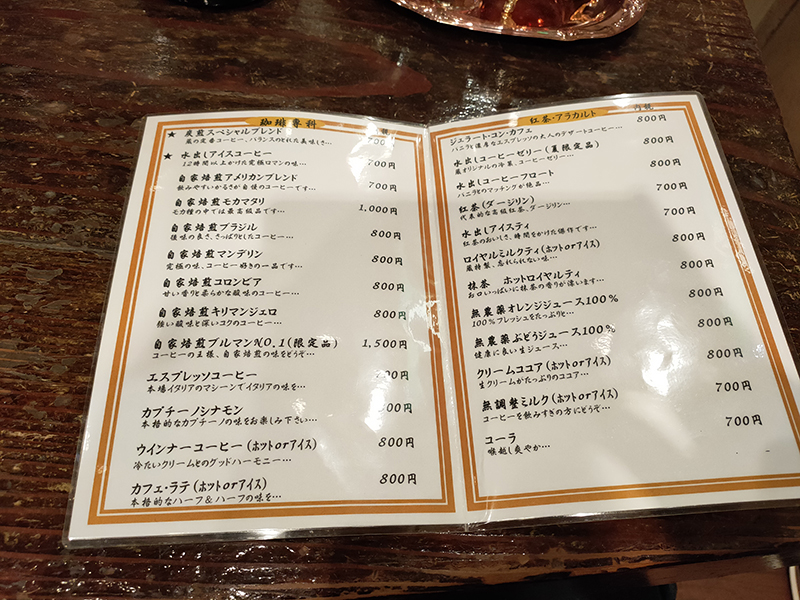 珈琲専科
内税
★ 炭煎スペシャルブレンド
蔵の定番コーヒー、バランスのとれた美味しさ… 700円
★ 水出しアイスコーヒー
12時間以上かけた究極ロマンの味… 700円
自家焙煎アメリカンブレンド
飲みやすいかるさが自慢のコーヒーです… 700円
自家焙煎モカマタリ 1,000円
モカ種の中では最高級品です…
自家焙煎ブラジル 800円
後味の良さ、さっぱりとしたコーヒー…
自家焙煎マンデリン 800円
究極の味、コーヒー好きの一品です…
自家焙煎コロンビア 800円
甘い香りと柔らかな酸味のコーヒー…
自家焙煎キリマンジェロ 800円
強い酸味と深いコクのコーヒー…
自家焙煎ブルマンNO.1(限定品) 1,500円
コーヒーの王様、自家焙煎の味をどうぞ…
エスプレッソコーヒー
本場イタリアのマシーンでイタリアの味を… 700円
カプチーノシナモン 00円
本格的なカプチーノの味をお楽しみ下さい…
ウインナーコーヒー(ホットorアイス) 800円
冷たいクリームとのグッドハーモニー…
カフェ・ラテ(ホットorアイス) 800円
本格的なハーフ&ハーフの味を…
紅茶・アラカルト
内税
ジェラート・コン・カフェ 800円
バニラと濃厚なエスプレッソの大人のデザートコーヒー…
水出しコーヒーゼリー(夏限定品) 800円
蔵オリジナルの冷菓、コーヒーゼリー…
水出しコーヒーフロート 700円
バニラとのマッチングが絶品…
紅茶(ダージリン) 700円
代表的な高級紅茶、ダージリン…
水出しアイスティ 700円
紅茶のおいしさ、時間をかけた傑作です…
ロイヤルミルクティ(ホットorアイス) 800円
蔵特製、忘れられない味…
抹茶 ホットロイヤルティ 800円
お口いっぱいに抹茶の香りが漂います…
無農薬オレンジジュース100% 800円
100%フレッシュをたっぷりと…
無農薬ぶどうジュース100% 800円
健康に良い生ジュース…
クリームココア(ホットorアイス) 800円
生クリームがたっぷりのココア…
無調整ミルク(ホットorアイス) 700円
コーヒーを飲みすぎの方にどうぞ…
コーラ 700円
喉越し爽やか…